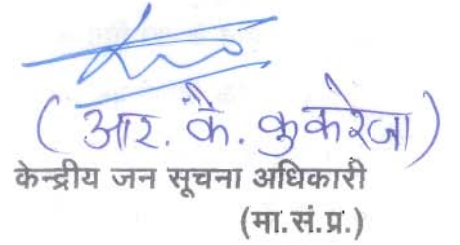 ( आर. के. कुकरेजा )
केन्द्रीय जन सूचना अधिकारी
(मा.सं.प्र.)